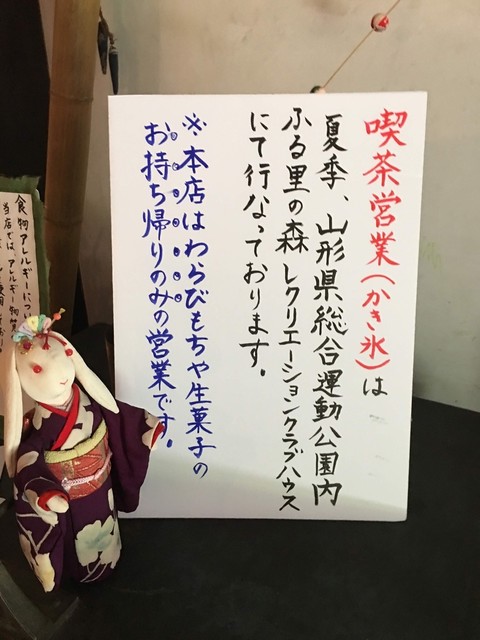 喫茶営業(かき氷)は
夏季、山形県総合運動公園内
ふる里の森 レクリエーションクラブハウス
にて行なっております。
※本店はわらびもちや生菓子の
お持ち帰りのみの営業です。
食物アレルギーにつ
当店では、アレルギー物質